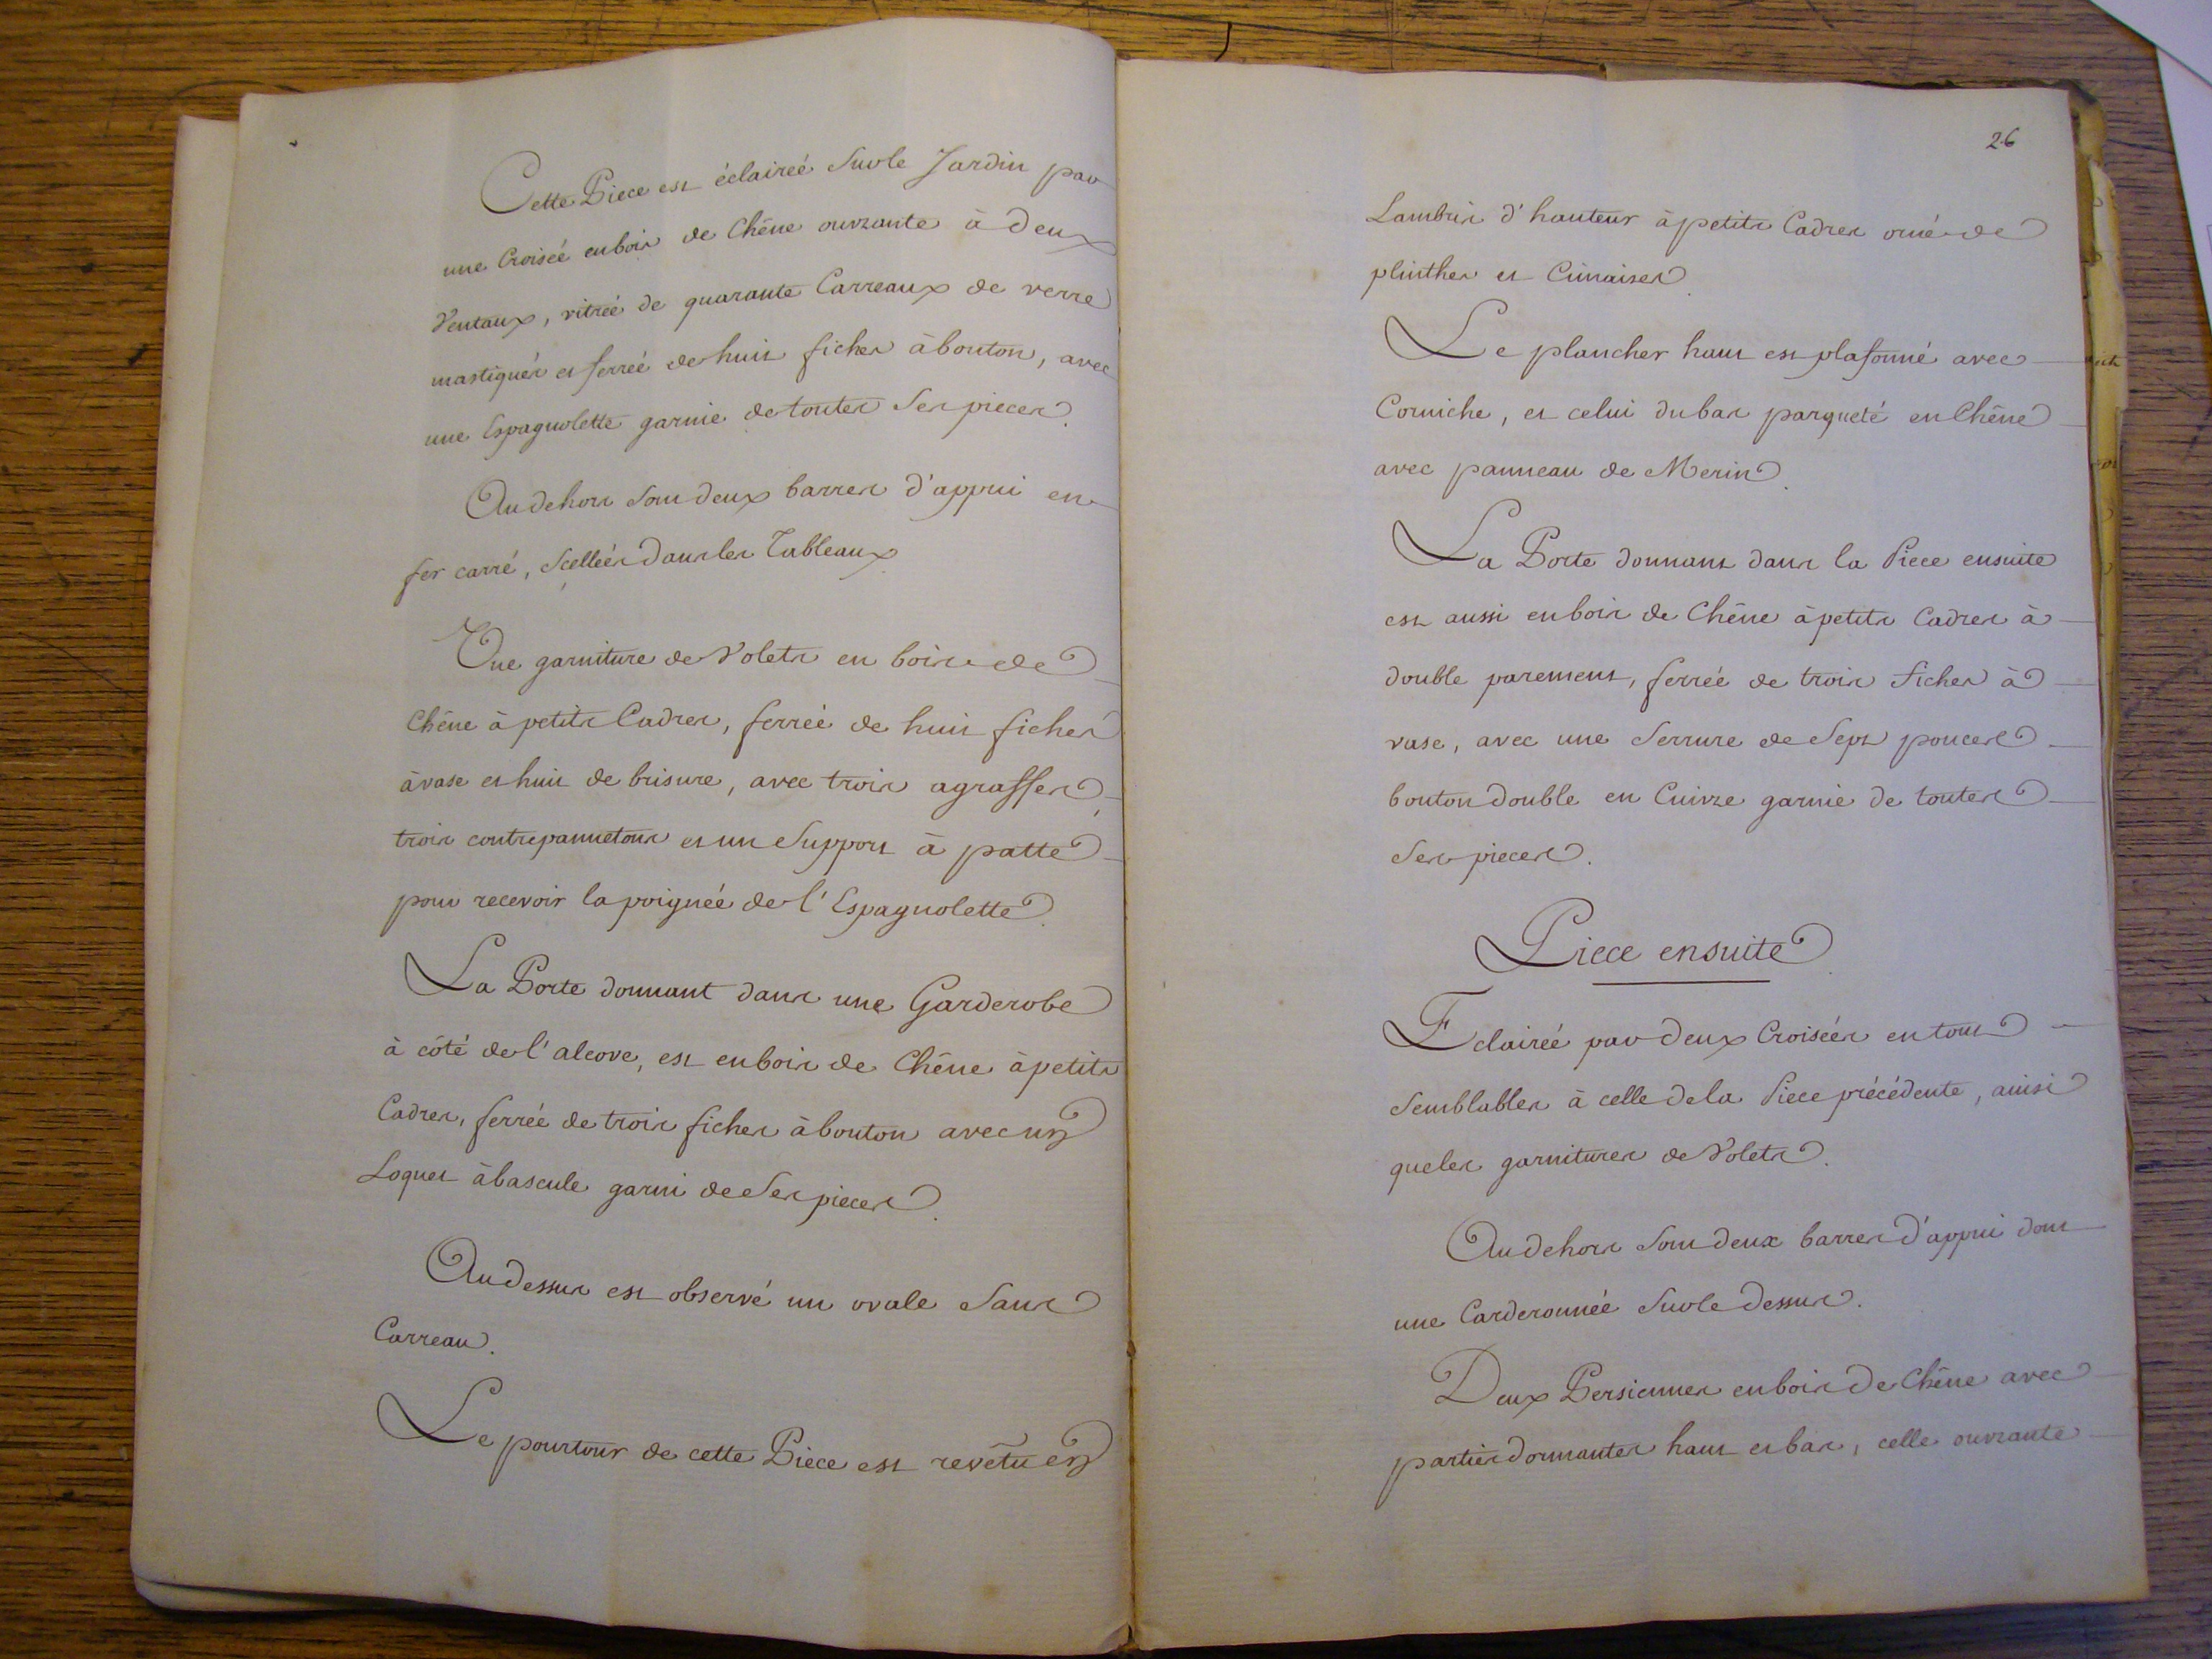 Cette Piece est éclaireé sur le Jardin par
une Croiseé en bois de Chêne ouvrante à deux
Ventaux, vitreé de quarante Carreaux de verre
mastiqués et ferreé de huit fiches à bouton, avec
une Espagnolette garnie de toutes ses pieces.
Au dehors sont deux barres d'appui en
fer carré, Scelleés dans les Tableaux.
Une garniture de Volets en bois de
Chêne à petits Cadres, ferreé de huit fiches
à vase et huit de brisure, avec trois agraffes,
trois contrepannetons et un Support à patte
pour recevoir la poigneé de l'Espagnolette.
La Porte donnant dans une Garderobe
à côté de l'alcove, est en bois de Chêne à petits
Cadres, ferreé de trois fiches à bouton avec un
Loquet à bascule garni de Ses pieces.
Au dessus est observé un ovale Sans
Carreau.
Le pourtour de cette Piece est revêtu en
26
Lambris d'hauteur à petits Cadres orné de
plinthes et Cimaises.
Le plancher haut est plafonné avec
Corniche, et celui du bas parqueté en Chêne
avec panneau de Merin.
La Porte donnant dans la Piece ensuite
est aussi en bois de Chêne à petits Cadres à
double parement, ferreé de trois fiches à
vase, avec une Serrure de Sept pouces
bouton double en Cuivre garnie de toutes
Ses pieces.
Piece ensuite.
Eclaireé par deux Croiseés en tout
Semblables à celle de la Piece précédente, ainsi
que les garnitures de Volets.
Au dehors sont deux barres d'appui dont
une Carderonneé Sur le dessus.
Deux Persiennes en bois de Chêne avec
parties dormantes haut et bas, celle ouvrante